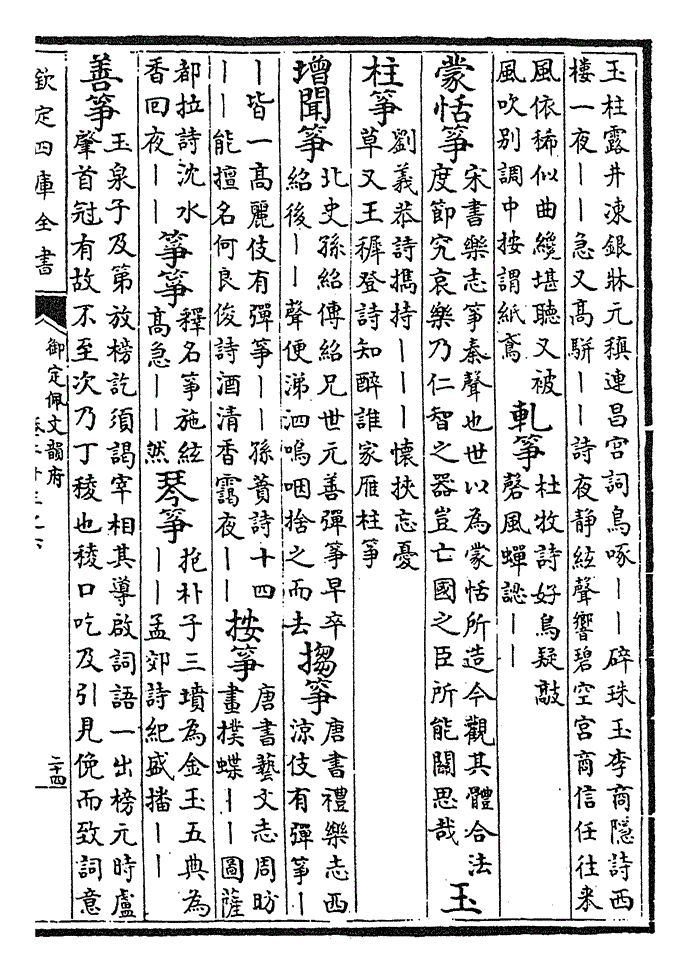 玉柱露井凍銀牀元稹連昌宮詞鳥啄——碎珠玉李商隱詩西
樓一夜——急又高駢——詩夜静絃聲響碧空宮商信任往来
風依稀似曲纔堪聽又被
風吹别調中按謂紙鳶
軋箏
杜牧詩好鳥疑敲
磬風蟬認——
蒙恬箏
宋書樂志箏秦聲也世以為蒙恬所造今觀其體合法
度節究哀樂乃仁智之器豈亡國之臣所能關思哉
玉
柱箏
劉義恭詩擕持———懷挾忘憂
草又王穉登詩知醉誰家雁柱箏
增聞箏
北史孫紹傳紹兄世元善彈箏早卒
紹後——聲便涕泗嗚咽捨之而去
搊箏
唐書禮樂志西
涼伎有彈箏—
—皆一高麗伎有彈箏——孫蕡詩十四
——能擅名何良俊詩酒清香靄夜——
按箏
唐書藝文志周昉
畫撲蝶——圖薩
都拉詩沈水
香回夜——
箏箏
釋名箏施絃
高急——然
琴箏
抱朴子三墳為金玉五典為
——孟郊詩紀盛播——
善箏
玉泉子及第放榜訖須謁宰相其導啟詞語一出榜元時盧
肇首冠有故不至次乃丁稜也稜口吃及引見俛而致詞意
欽定四庫全書
御定佩文韻府
二十四